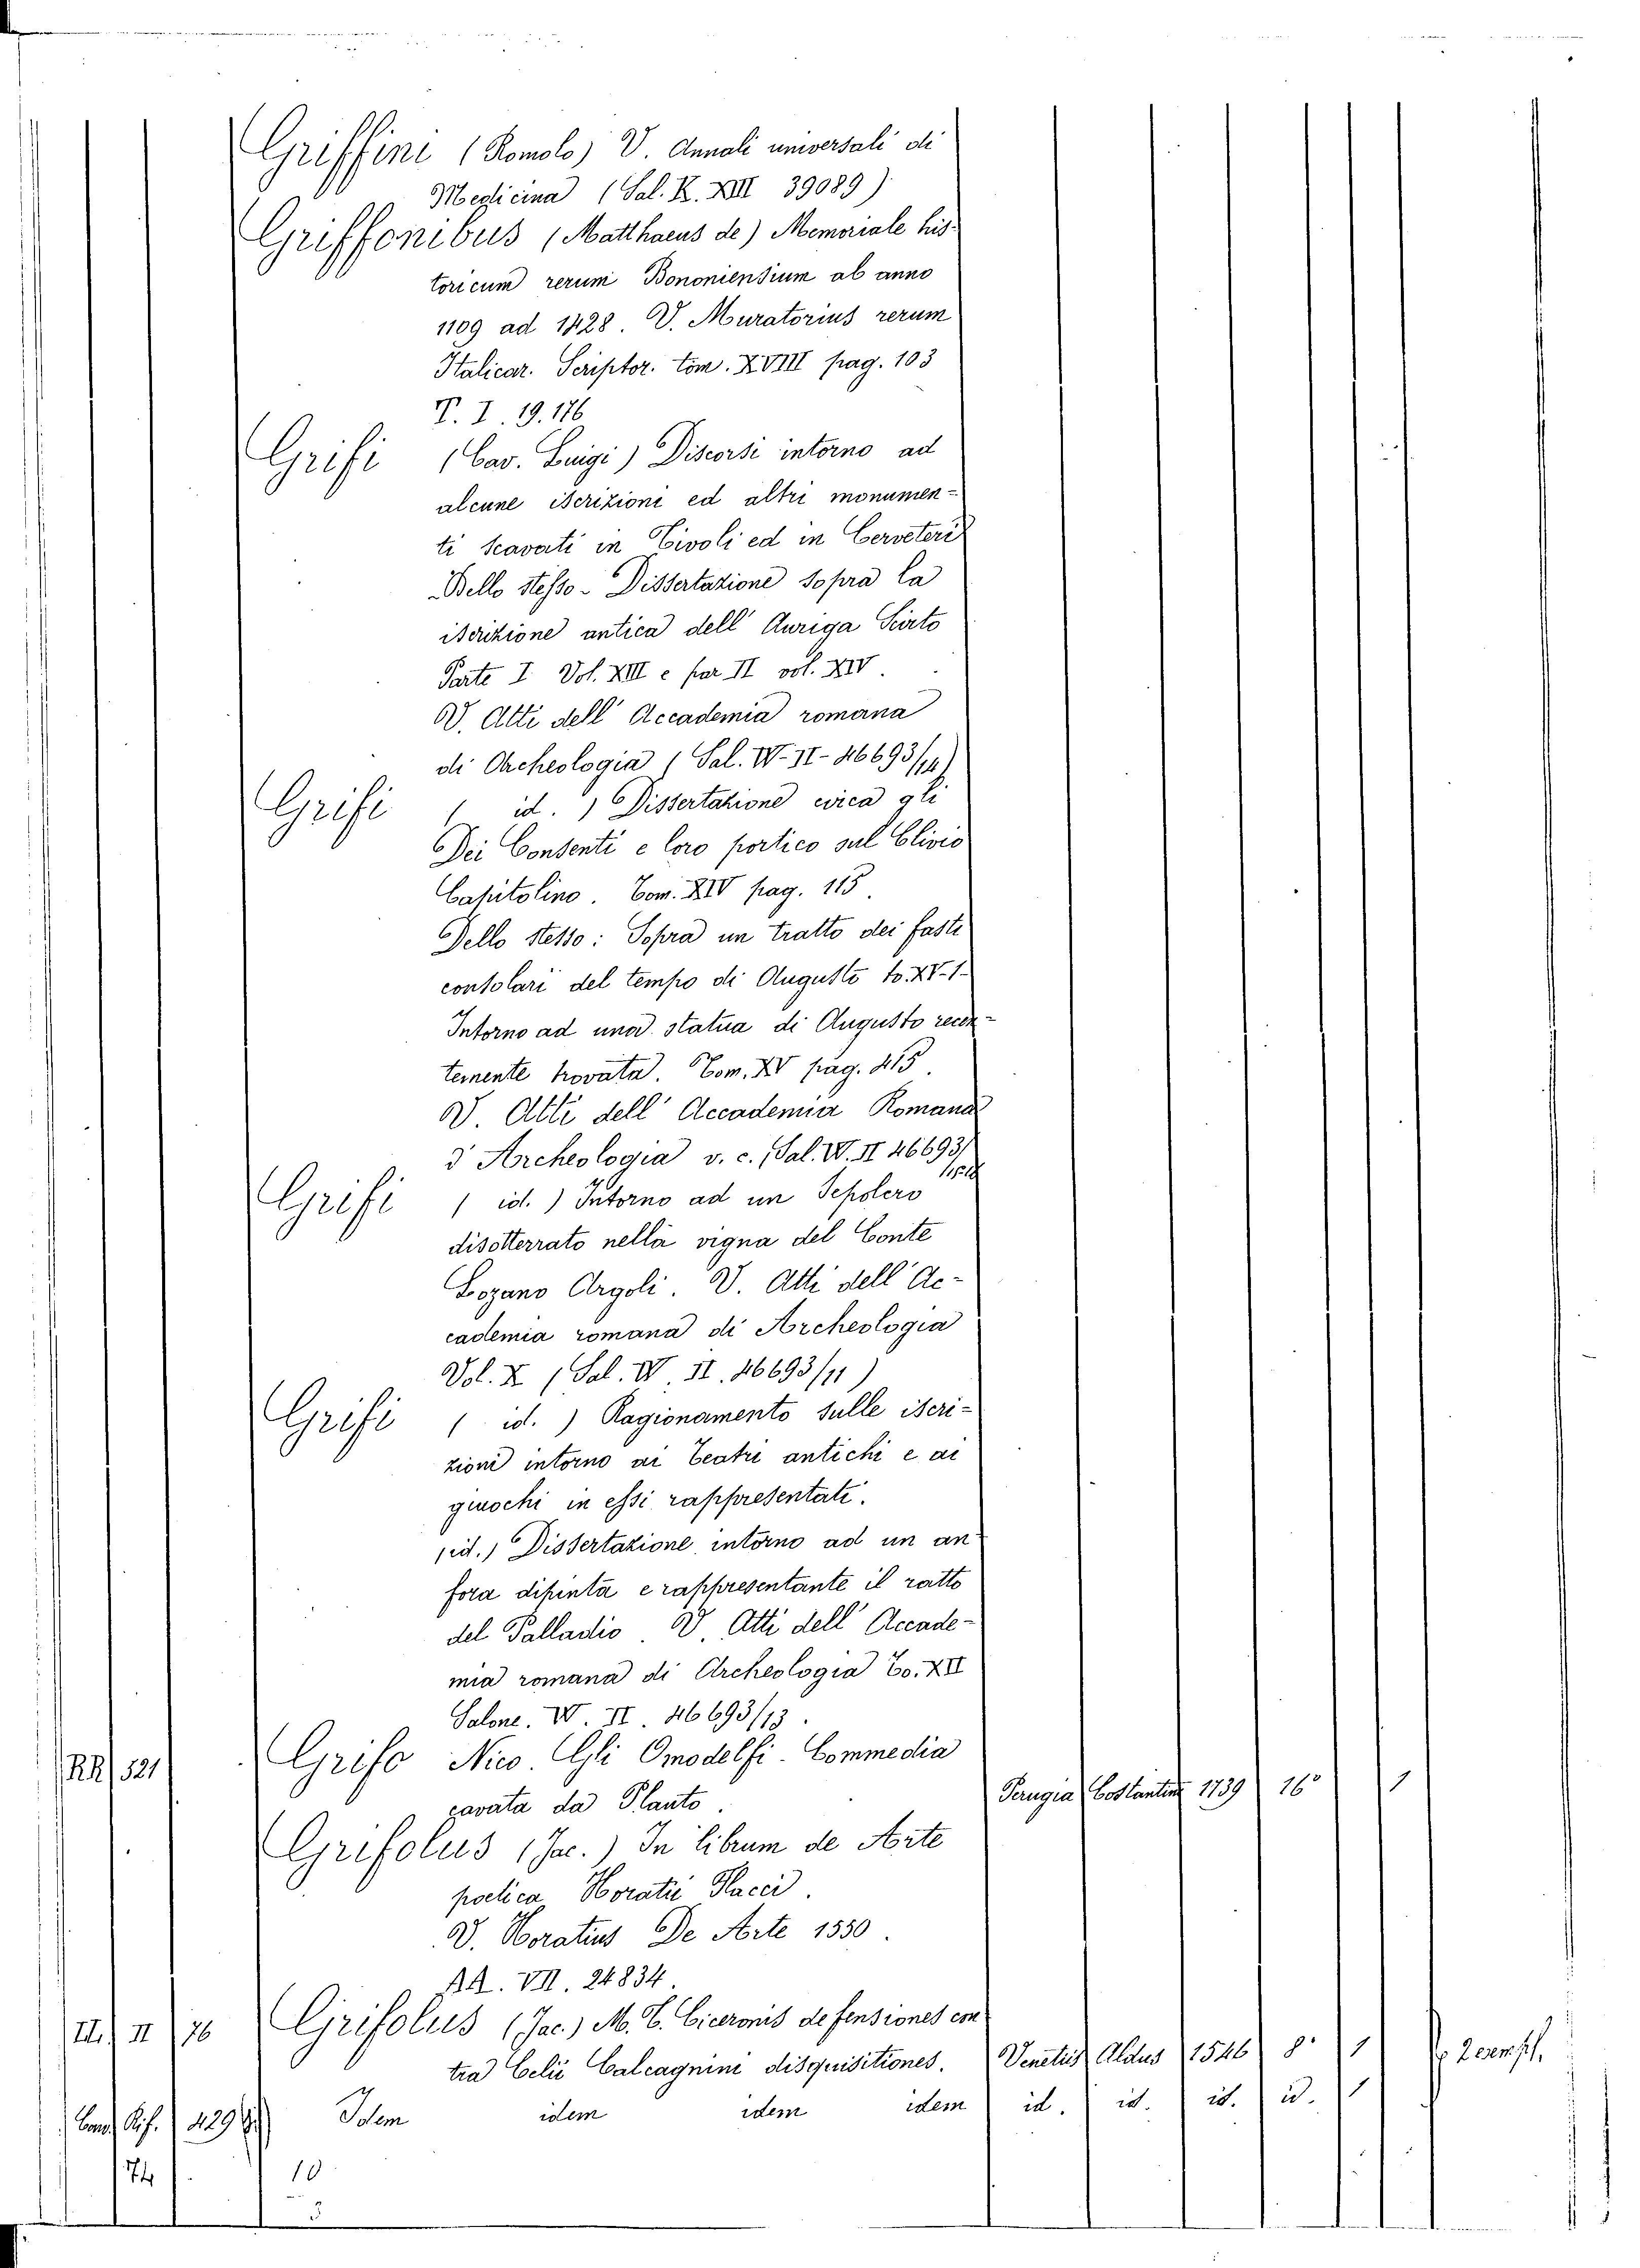 Griffini (Romolo) V. Annali universali di
Medicina (Sal. K. XIII 39089)
Griffonibus (Matthaeus de) Memoriale his-
toricum rerum Bononiensium ab anno
1109 ad 1428. V. Muratorius rerum
Italicar. Scriptor. tom. XVIII pag. 103
T. I. 19. 176
Grifi (Cav. Luigi) Discorsi intorno ad
alcune iscrizioni ed altri monumen=
ti scavati in Tivoli ed in Cerveteri
Dello stesso - Dissertazione sopra la
iscrizione antica dell' Auriga Scirto
Parte I Vol. XIII e par II vol. XIV.
V. Atti dell' Accademia romana
di Archeologia (Sal. W-II-46693/14)
Grifi ( id. ) Dissertazione circa gli
Dei Consenti e loro portico sul Clivio
Capitolino. Tom. XIV pag. 115.
Dello stesso: Sopra un tratto dei fasti
consolari del tempo di Augusto to. XV-1-
Intorno ad una statua di Augusto recen-
temente trovata. Tom. XV pag. 415.
V. Atti dell' Accademia Romana
d'Archeologia v. c. (Sal. W. II 46693/
Grifi ( id. ) Intorno ad un Sepolcro
disotterrato nella vigna del Conte
Lozano Argoli. V. Atti dell' Ac-
cademia romana di Archeologia
Vol. X (Sal. W. II. 46693/11)
Grifi ( id. ) Ragionamento sulle iscri-
zioni intorno ai Teatri antichi e ai
giuochi in essi rappresentati.
(id.) Dissertazione intorno ad un an-
fora dipinta e rappresentante il ratto
del Palladio. V. Atti dell' Accade-
mia romana di Archeologia To. XII
Salone. W. II. 46693/13.
RR 521 Grifo Nico. Gli Omodelfi - Commedia
cavata da Plauto. Perugia Costantini 1739 16° 1
Grifolus (Jac.) In librum de Arte
poetica Horatii Flacci.
V. Horatius De Arte 1550.
AA. VII. 24834.
III. II 76 Grifolus (Jac.) M. T. Ciceronis defensiones con
tra Celii Calcagnini disquisitiones. Venetiis Aldus 1546 8° 1
Cand Rif. 429 Idem idem idem idem id. id. id. id. 1
74 10